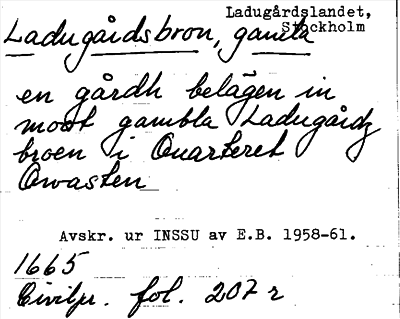 Ladugårdslandet,
Stockholm
Ladugårdsbron, gamla
en gårdh belägen in
moot gambla Ladugårdz
broen i Quarteret
Qwasten
Avskr. ur INSSU av E.B. 1958-61.
1665
Civilpr. fol. 207 r